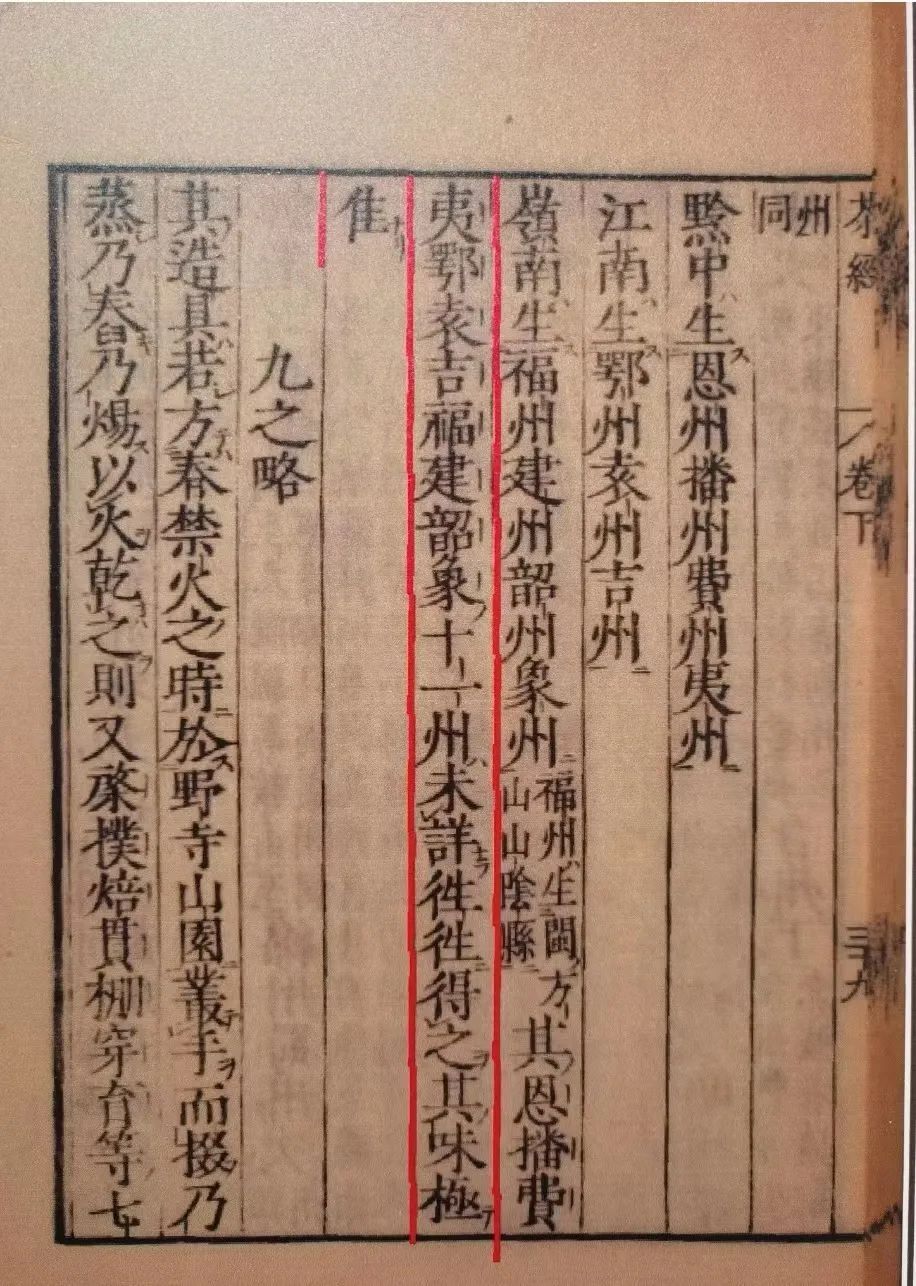 茶經 卷下 三十九
州同
黔中生恩州播州費州夷州
江南生鄂州袁州吉州
嶺南生福州建州韶州象州福州生閩方山山陰縣其恩播費
夷鄂袁吉福建韶象十一州未詳徃徃得之其味極
隹
九之略
其造具若方春禁火之時於野寺山園叢手而掇乃
蒸乃舂乃煬以火乾之則又棨撲焙貫棚穿育等七